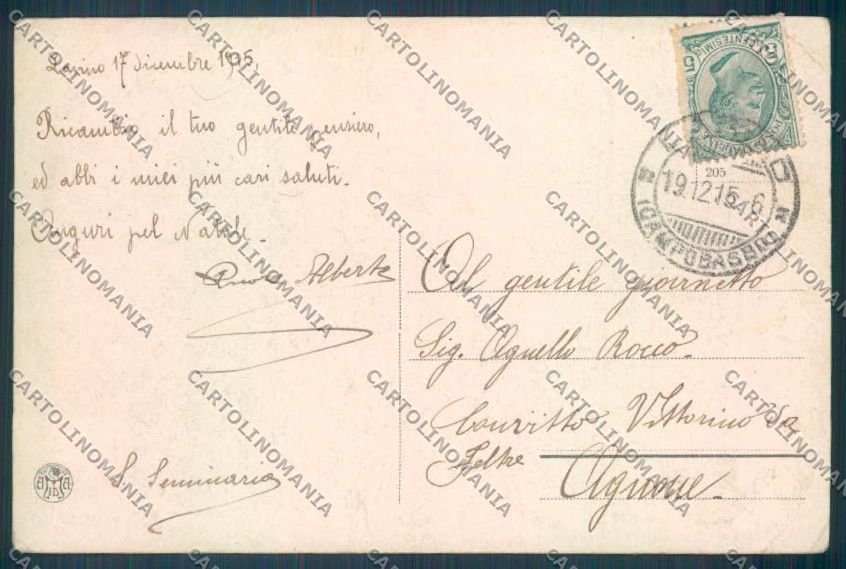 Larino 17 dicembre 1915.
Ricambio il tuo gentile pensiero,
ed abbi i miei più cari saluti.
Auguri pel Natale.
Alberto
S. Seminario
Al gentile giovinetto
Sig. Agnello Rocco.
Convitto Vittorino da
Feltre
Agnone.
CENTESIMI
5
205
19.12.15. 6
(CAMPOBASSO)
CARTOLINOMANIA